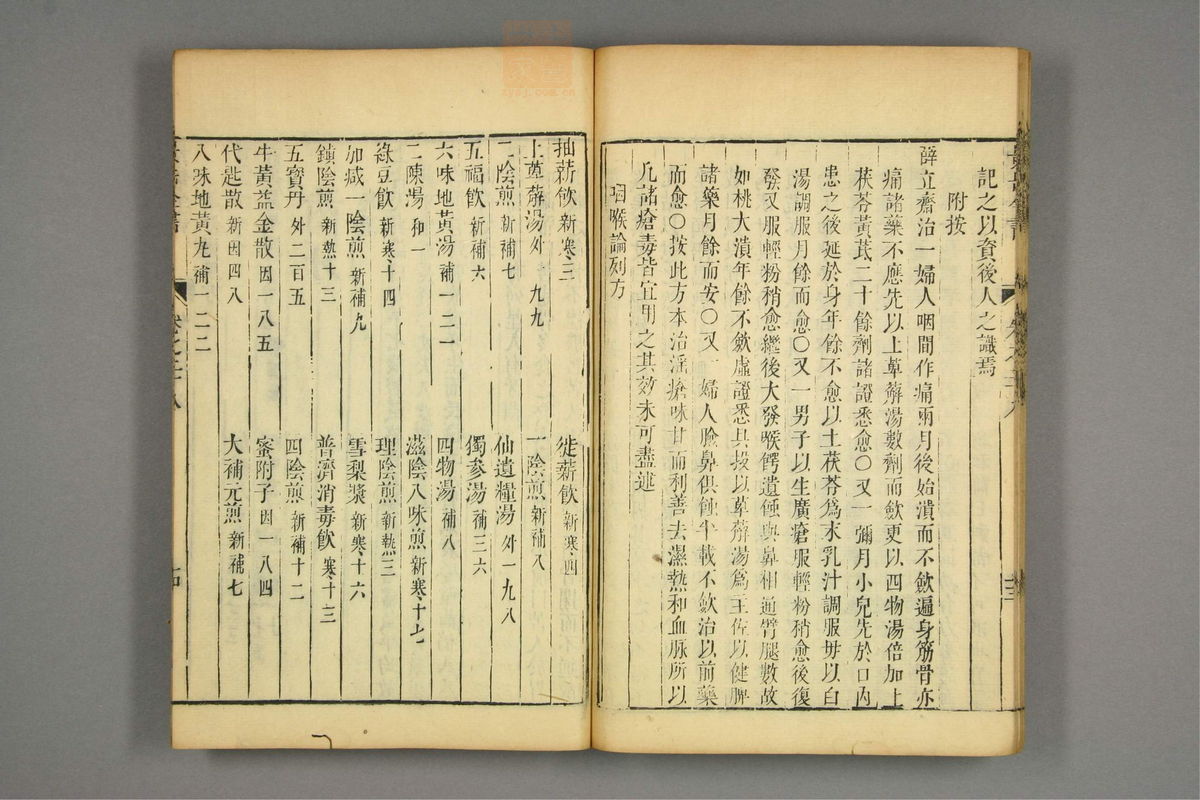 記之以資後人之識焉
附按
薛立齋治一婦人咽間作痛兩月後始潰而不斂遍身筋骨亦
痛諸藥不應先以上萆薢湯數劑而斂更以四物湯倍加上
茯苓黃芪二十餘劑諸證悉愈○又一彌月小兒先於口內
患之後延於身年餘不愈以土茯苓爲末乳汁調服毋以白
湯調服月餘而愈○又一男子以生廣瘡服輕粉稍愈後復
發又服輕粉稍愈繼後大發喉腭遺蝕與鼻相通臂腿數故
如桃大潰年餘不斂虛證悉具投以萆薢湯爲主佐以健脾
諸藥月餘而安○又一婦人臉鼻俱蝕半載不斂治以前藥
而愈○按此方本治淫瘡味甘而利善去濕熱和血脉所以
凡諸瘡毒皆宜用之其效未可盡述
咽喉論列方
抽薪飲新寒三
徙薪飲新寒四
土萆薢湯外 九九
一陰煎新補八
二陰煎新補七
仙遺糧湯外一九八
五福飲新補六
獨參湯補三六
六味地黃湯補一二一
四物湯補八
二陳湯和一
滋陰八味煎新寒十七
綠豆飲新寒十四
理陰煎新熱三
加减一陰煎新補九
雪梨漿新寒十六
鎮陰煎新熱十三
普濟消毒飲寒十三
五寶丹外二百五
四陰煎新補十二
牛黃益金散因一八五
蜜附子因一八四
代匙散新因四八
大補元煎新補七
八味地黃丸補一二二